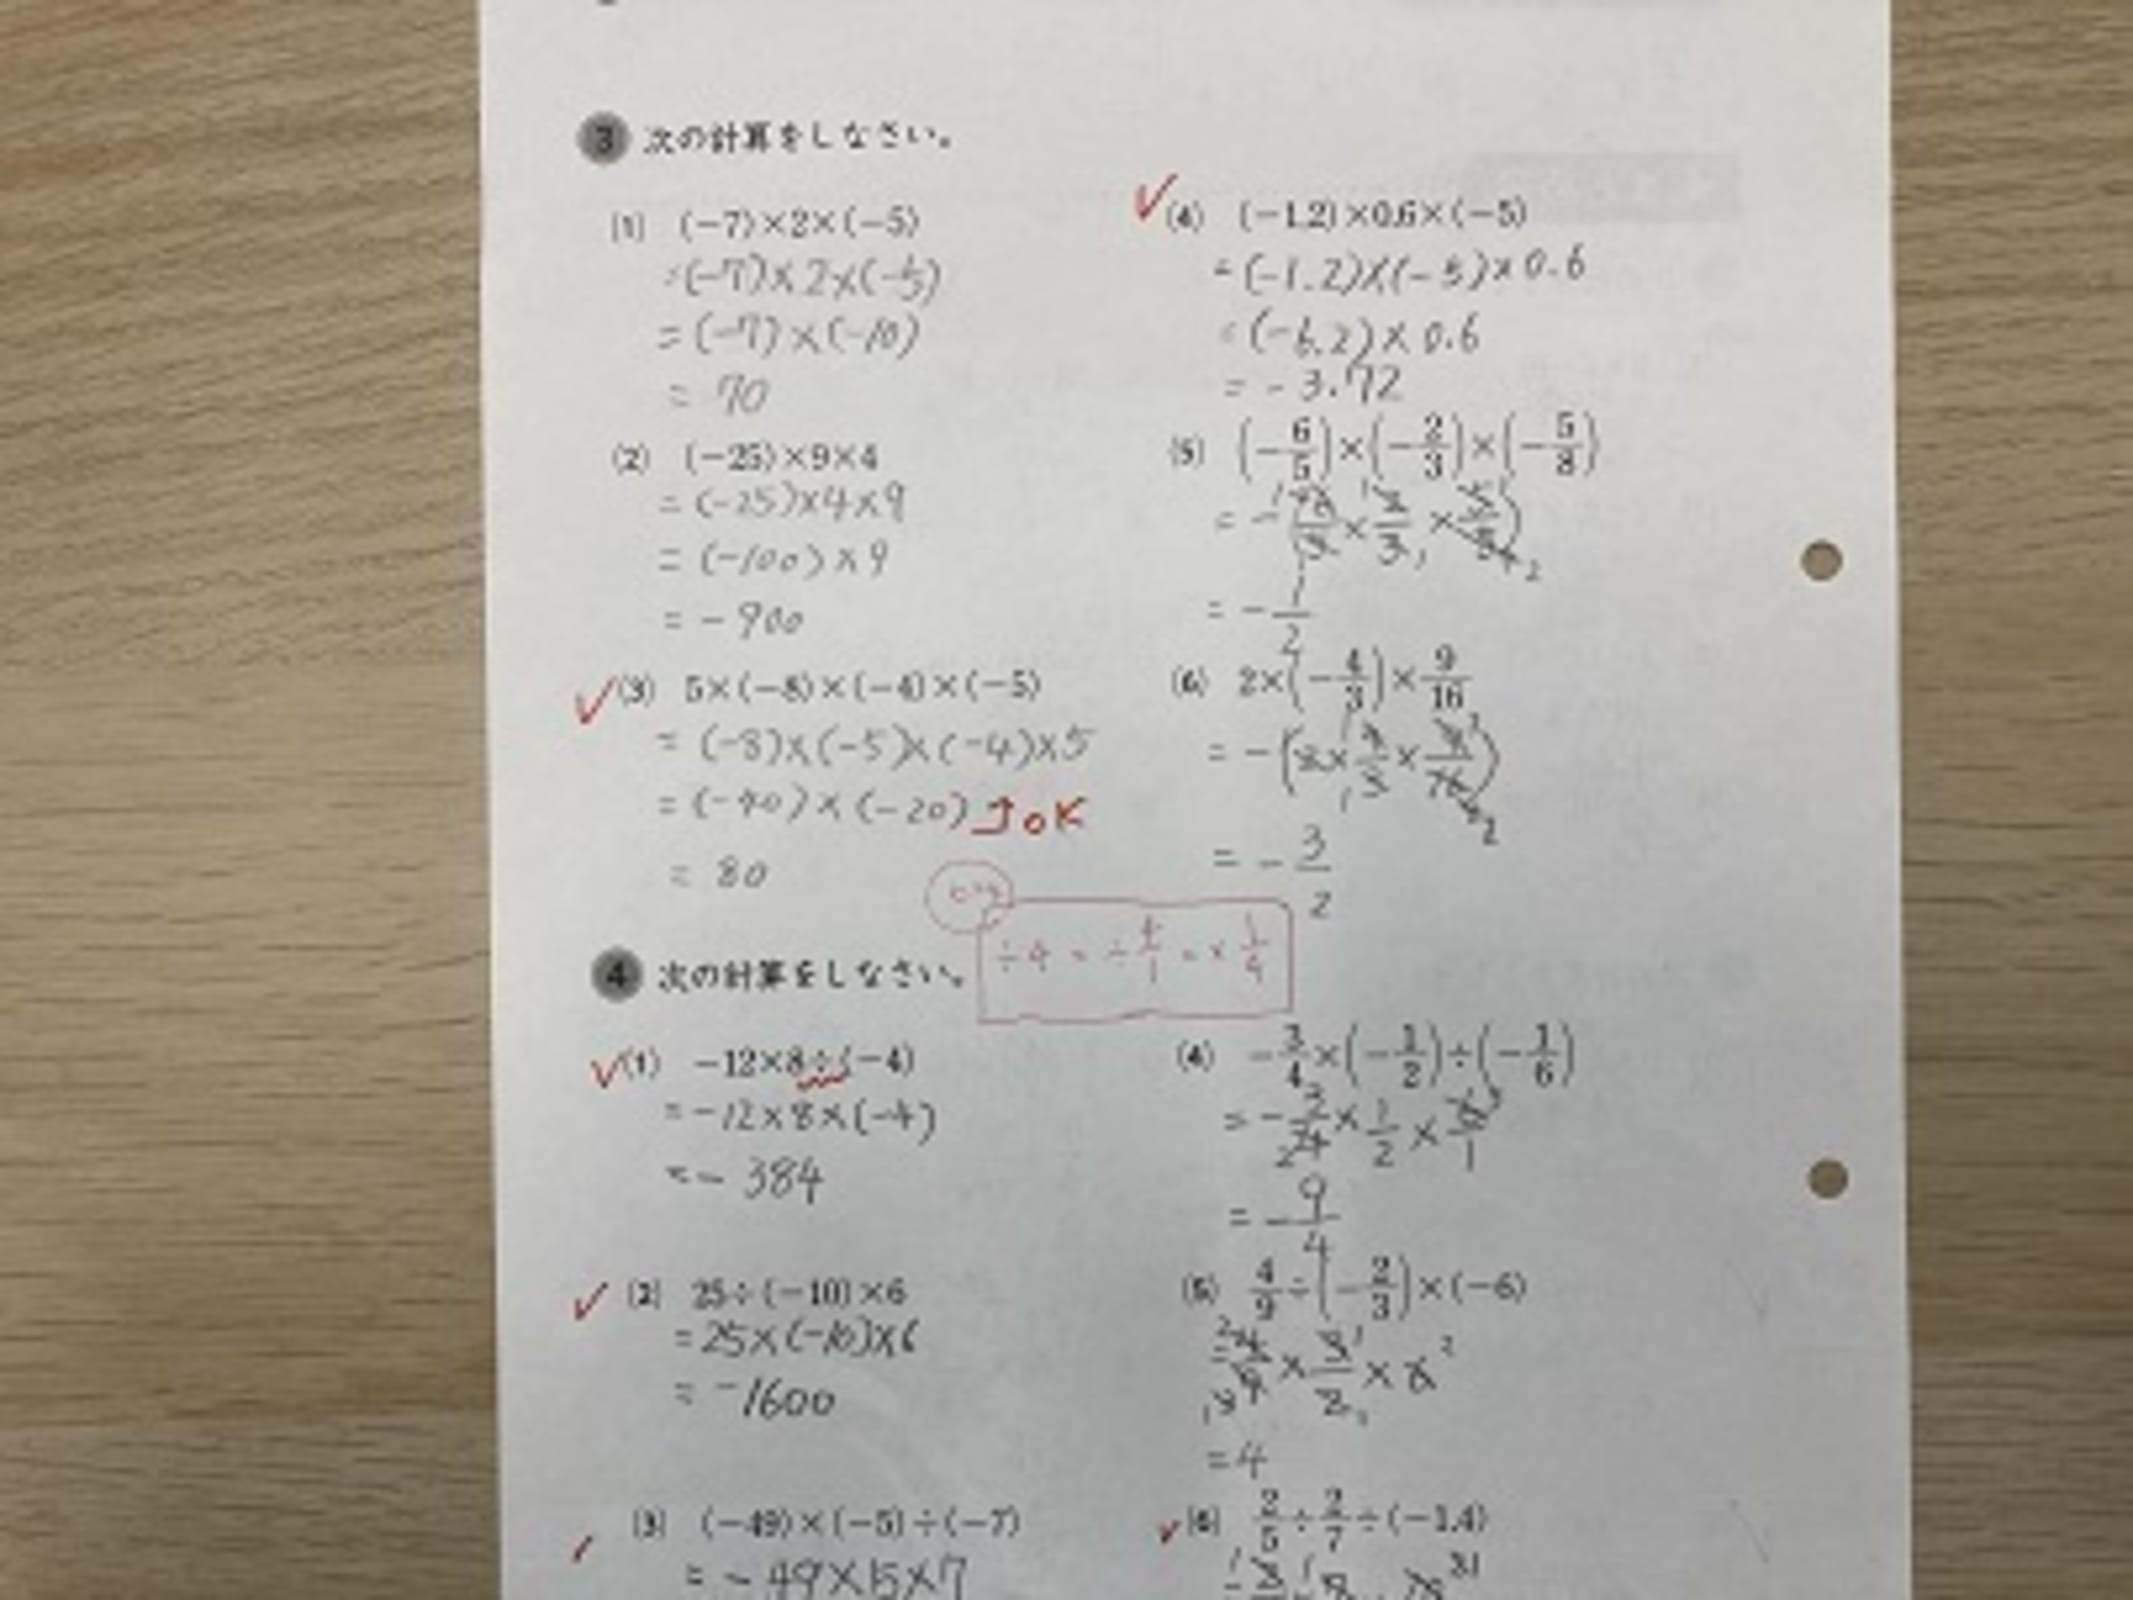 3 次の計算をしなさい。
(1) (−7)×2×(−5)
=(−7)×2×(−5)
=(−7)×(−10)
= 70
(2) (−25)×9×4
=(−25)×4×9
=(−100)×9
=−900
(3) 5×(−8)×(−4)×(−5)
=(−8)×(−5)×(−4)×5
=(−40)×(−20) OK
= 80
(4) (−1.2)×0.6×(−5)
=(−1.2)×(−5)×0.6
=(−6.2)×0.6
=−3.72
(5) (−6/5)×(−2/3)×(−5/8)
=−1/2
(6) 2×(−4/3)×9/16
=−3/2
÷4 = ÷4/1 = ×1/4
4 次の計算をしなさい。
(1) −12×8÷(−4)
=−12×8×(−4)
=−384
(2) 25÷(−10)×6
=25×(−10)×6
=−1600
(3) (−49)×(−5)÷(−7)
=−49×15×7
(4) −3/4×(−1/2)÷(−1/6)
=−9/4
(5) 4/9÷(−2/3)×(−6)
=4
(6) 2/5÷2/7÷(−1.4)